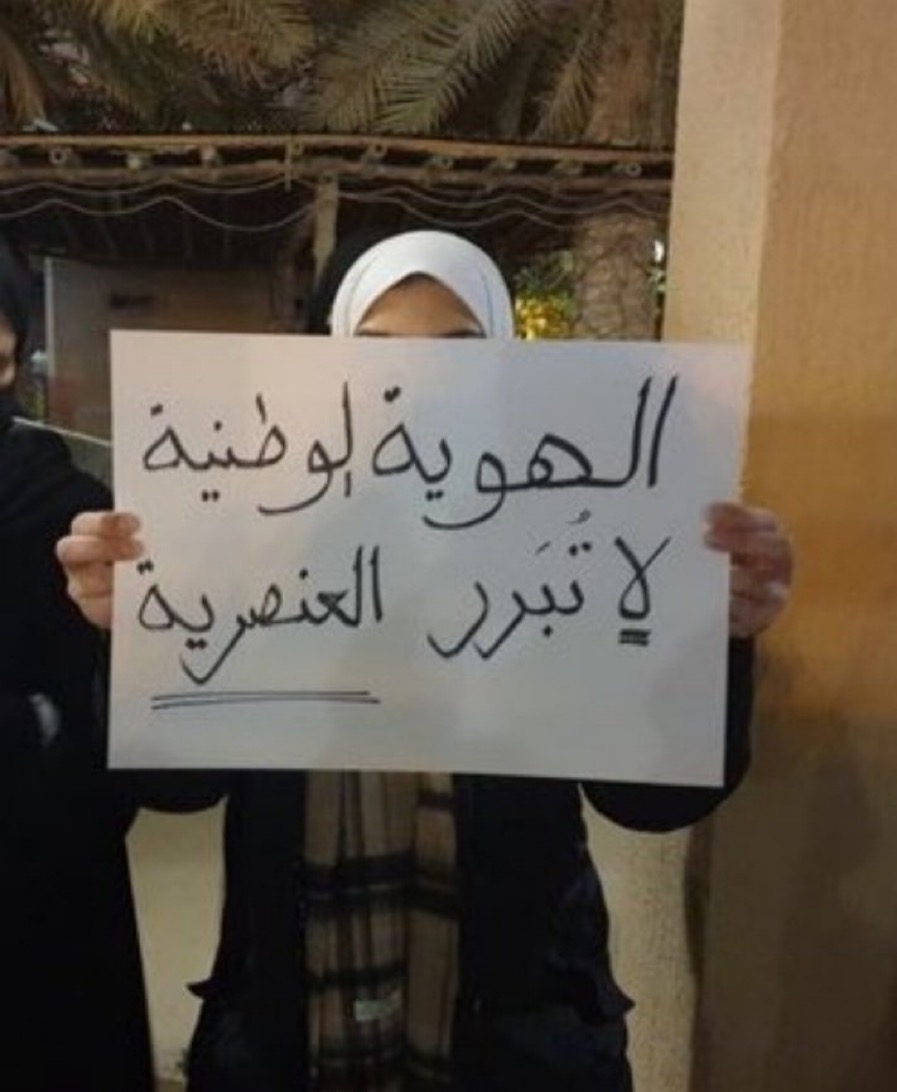 الهوية الوطنية
لا تُبَرر العنصرية